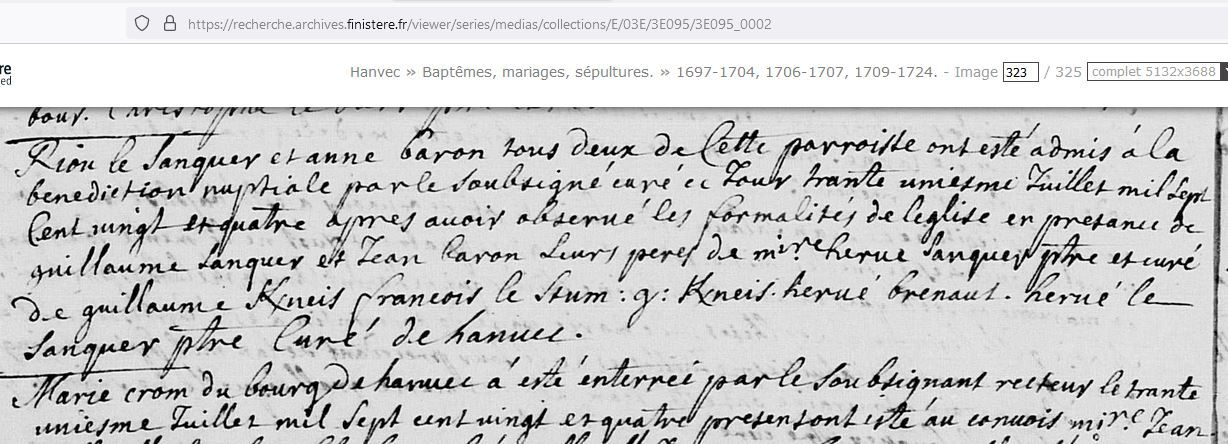 https://recherche.archives.finistere.fr/viewer/series/medias/collections/E/03E/3E095/3E095_0002
re
ed
Hanvec » Baptêmes, mariages, sépultures. » 1697-1704, 1706-1707, 1709-1724. - Image 323 / 325 complet 5132x3688
Riou le Sanquer et anne baron tous deux de Cette parroisse ont esté admis á la
benediction nuptiale par le Soubsigné curé ce Jour trante uniesme Juillet mil Sept
Cent vingt et quatre apres avoir observé les formalités de leglise en presance de
guillaume Sanquer et Jean baron Leurs peres de mire herve Sanquer ptre et curé
de guillaume Kneis francois le Stum : g : Kneis . hervé brenaut . hervé le
Sanquer ptre Curé de hanvec .
Marie crom du bourg de hanvec á esté enterreé par le Soubsignant recteur le trante
uniesme Juillet mil Sept cent vingt et quatre present ont esté au convois mire Jean